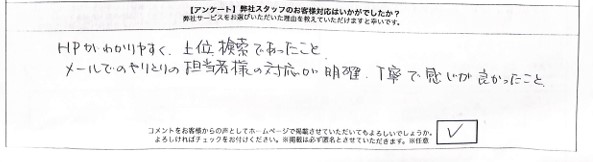 【アンケート】弊社スタッフのお客様対応はいかがでしたか？
弊社サービスをお選びいただいた理由を教えていただけますと幸いです。
HPがわかりやすく、上位検索であったこと
メールでのやりとりの担当者様の対応が明確、丁寧で感じが良かったこと
コメントをお客様からの声としてホームページで掲載させていただいてもよろしいでしょうか。
よろしければチェックをお付けください。※掲載は必ず匿名とさせていただきます。※任意